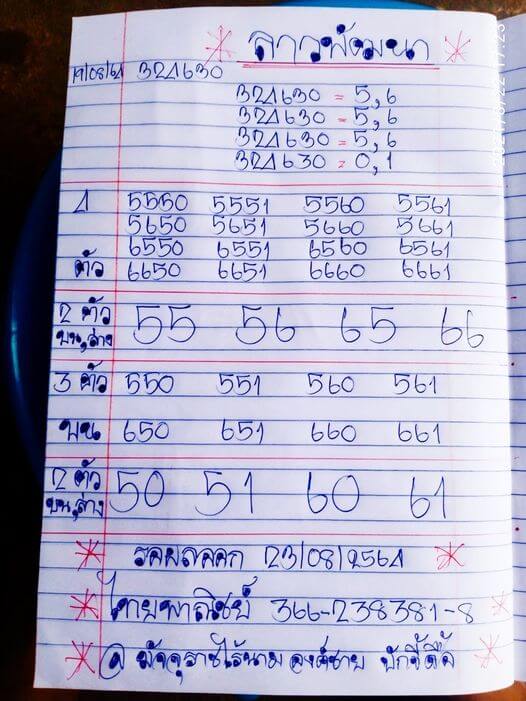 ลาวพัฒนา
19/08/64 324630
324630 = 5,6
324630 = 5,6
324630 = 5,6
324630 = 0,1
4 5550 5551 5560 5561
5650 5651 5660 5661
6550 6551 6560 6561
ตัว 6650 6651 6660 6661
2 ตัว
บน,ล่าง 55 56 65 66
3 ตัว 550 551 560 561
บน 650 651 660 661
2 ตัว
บน,ล่าง 50 51 60 61
23/08/2564
ไทยพาณิชย์ 366-238381-8
มัจจุราชไร้นาม